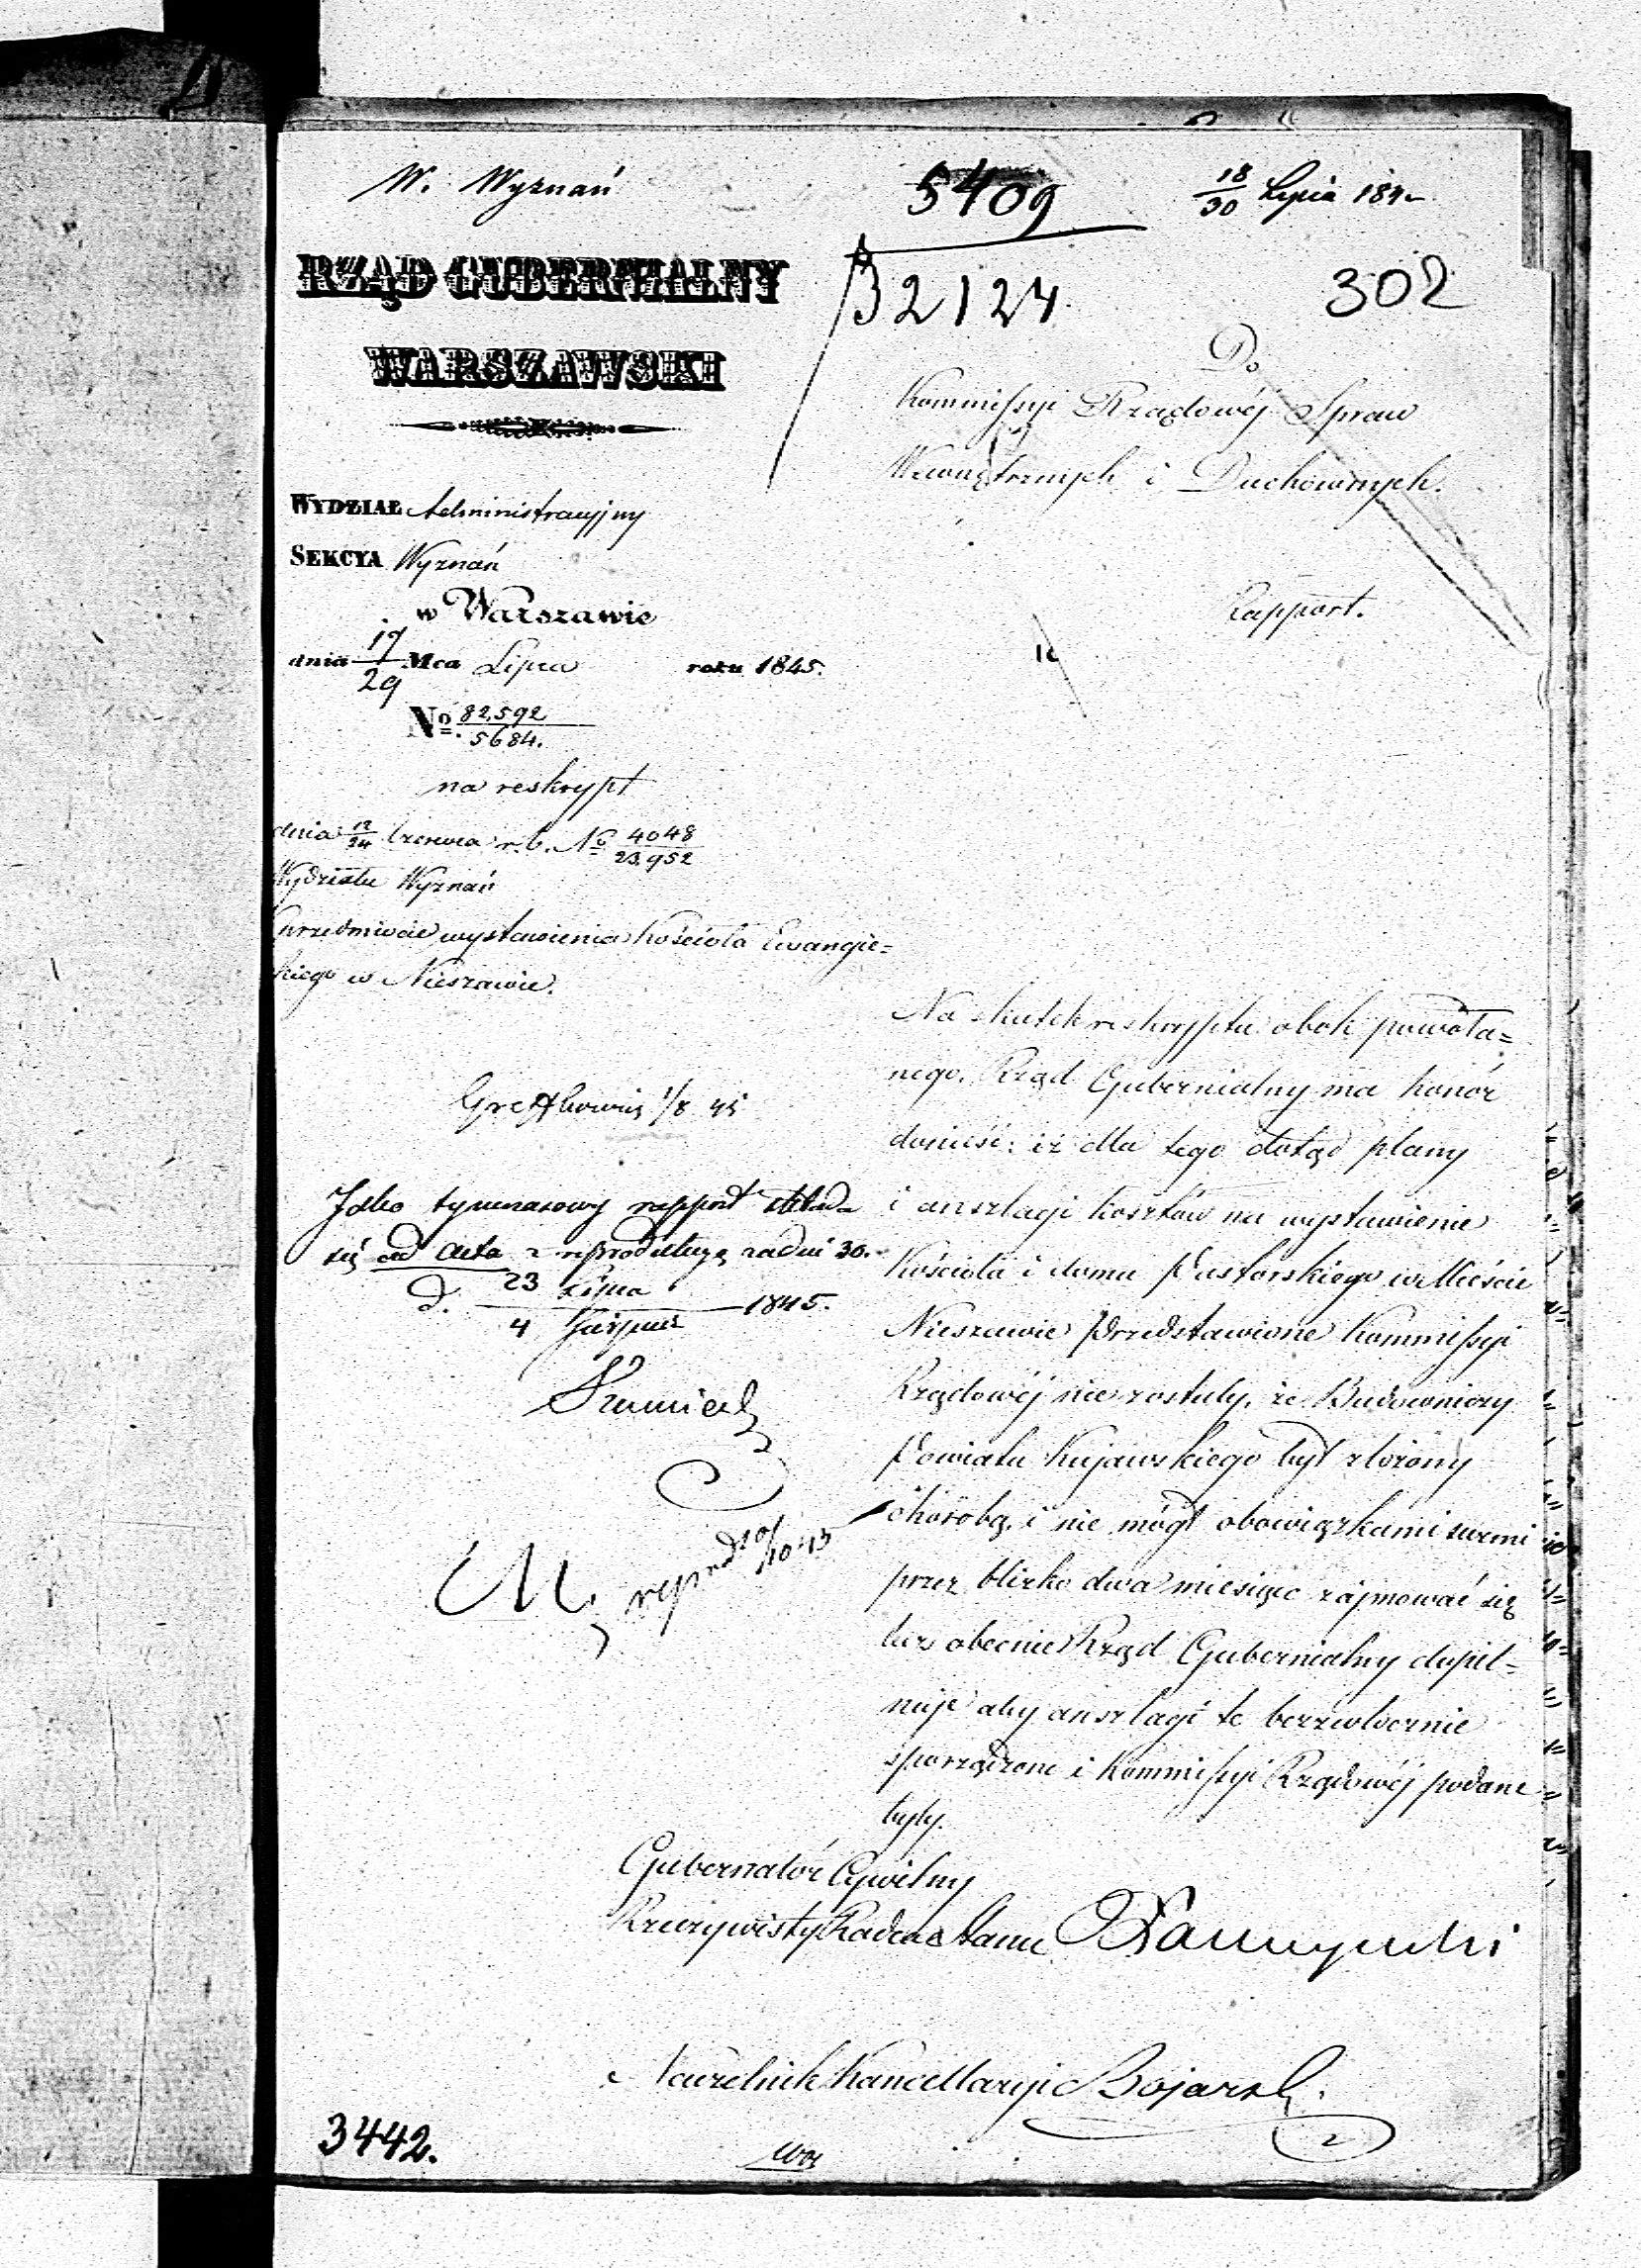 W. Wyznań
5409
18/30 Lipca 184
32124
302
RZĄD GUBERNIALNY
WARSZAWSKI
Do
Kommissyi Rządowéj Spraw
Wewnętrznych i Duchownych.
WYDZIAŁ Administracyjny
SEKCYA Wyznań
w Warszawie
dnia 17/29 Mca Lipca roku 1845.
No. 82,592/5684.
Rapport.
na reskrypt
dnia 12/24 Czerwca r. b. No 4048/23,952
Wydziału Wyznań
przedmiocie wystawienia kościoła Ewangie=
kiego w Nieszawie.
Na skutek reskryptu obok powoła=
nego, Rząd Gubernialny ma honór
donieść: iż dla tego dotąd plany
i anszlagi kosztów na wystawienie
Kościoła i domu Pastorskiego w Mieście
Nieszawie przedstawione Kommissyi
Rządowéj nie zostały, że Budowniczy
Powiatu Kujawskiego był złożony
chorobą, i nie mógł obowiązkami swemi
przez blizko dwa miesiące zajmować się
lecz obecnie Rząd Gubernialny dopil=
nuje aby anszlagi te bezzwłocznie
sporządzone i Kommissyi Rządowéj podane
były.
1/8 45
Jako tymczasowy rapport składa
się ad acta z reprodukcyą za dni 30.
d. 23 Lipca / 4 Sierpnia 1845.
Gubernator Cywilny
Rzeczywisty Radca Stanu
Naczelnik Kancellaryi Bojarski
3442.
2